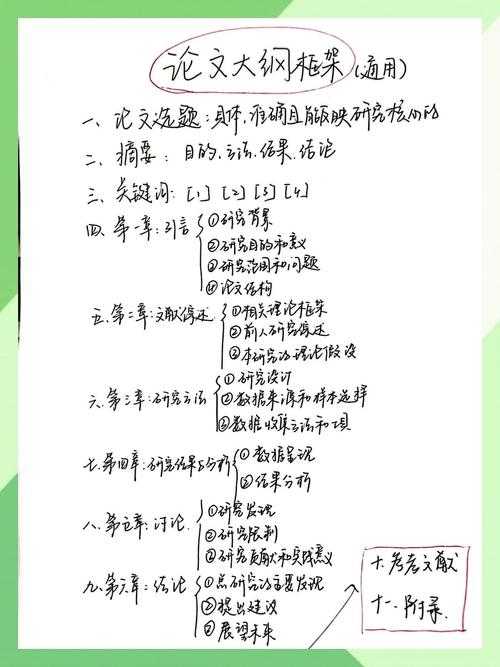 论文大纲框架(通用)
一、论文选题:具体,准确且能反映研究核心的
二、摘要:目的、方法、结果、结论
三、关键词:[1] [2] [3] [4]
四、第一章:引言
①研究背景
②研究目的和意义
③研究范围和问题
④论文结构
五、第二章:文献综述
①相关理论框架
②前人研究综述
③本研究的理论假设
六、第三章:研究方法
①研究设计
②数据来源和样本选择
③数据收集方法和
七、第四章:研究结果与分析
①数据呈现
②结果分析
八、第五章:讨论
①研究发现
②研究限制
③研究贡献和实践意义
九、第六章:结论
①总研究的主要发现
②提出建议
③展望未来
十、参考文献
十一、附录